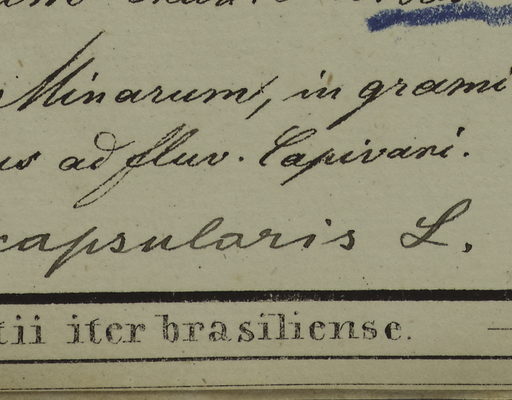 Minarum, in grami
us ad fluv. Capivari.
capsularis L.
tii iter brasiliense.